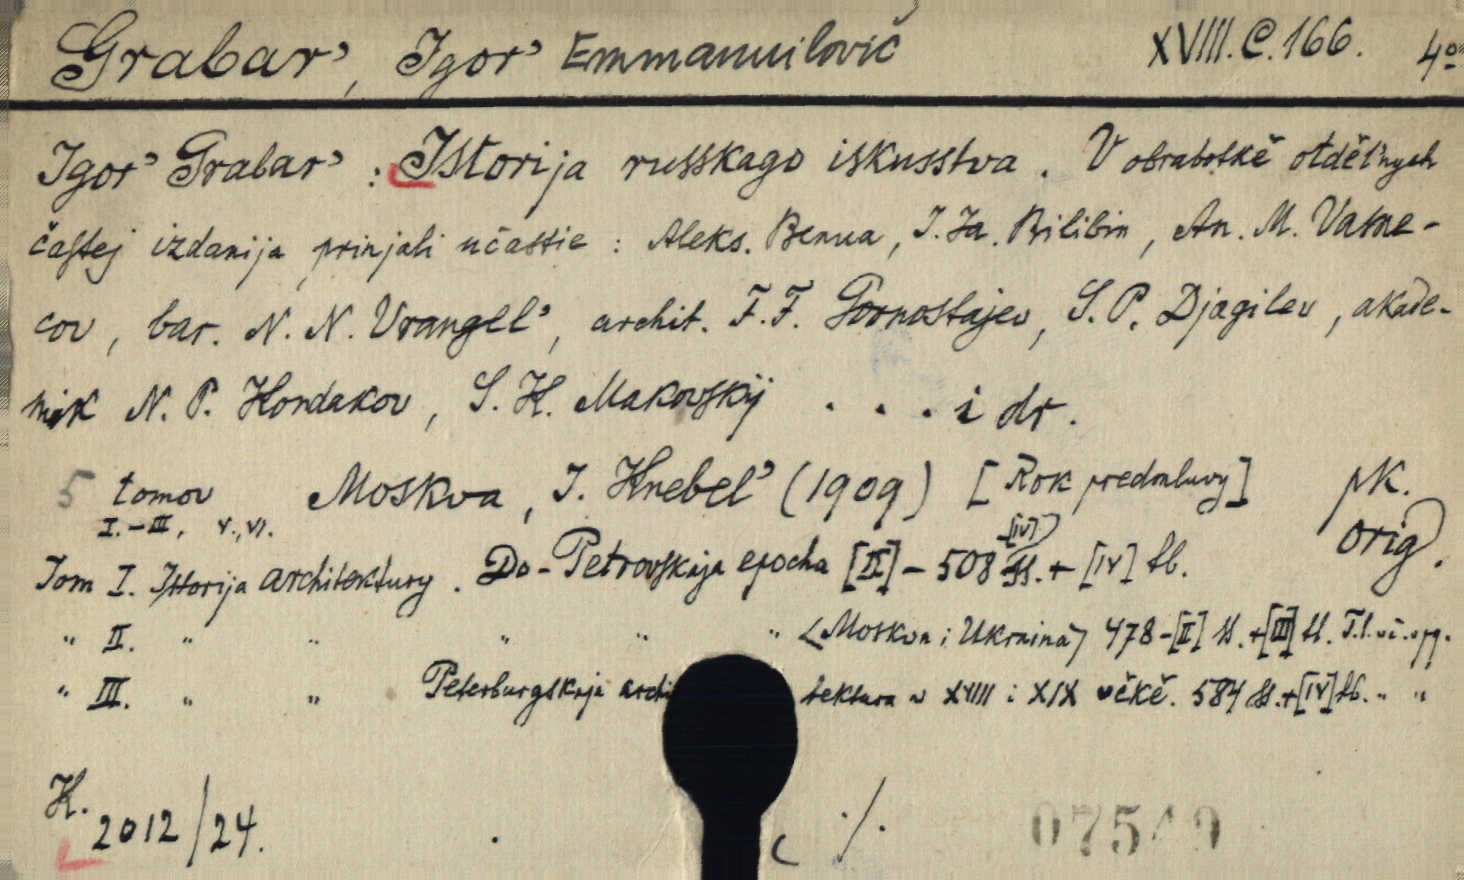 Grabar', Igor' Emmanuilovič XVIII.C.166. 4°
Igor' Grabar' : Istorija russkago iskusstva . V obrabotkě otděl'nych
častej izdanija prinjali učastie : Aleks. Benua, I. Ja. Bilibin, An. M. Vasne-
cov, bar. N. N. Vrangel', archit. F. F. Gornostajev, S. P. Djagilev, akade-
mik N. P. Kondakov, S. K. Makovskij . . . i dr.
5 tomov Moskva, I. Knebel' (1909) [Rok předmluvy] pk.
I.-III, V., VI. [IV] orig.
Tom I. Istorija architektury . Do-Petrovskaja epocha [II] - 508 ss. + [IV] tb.
" II. " " " " " (Moskva i Ukraina) 478-[II] ss. + [III] tb.
" III. " " Peterburgskaja architektura v XVIII i XIX věkě. 584 ss. + [IV] tb. " "
K. 2012/24. ./. 07549